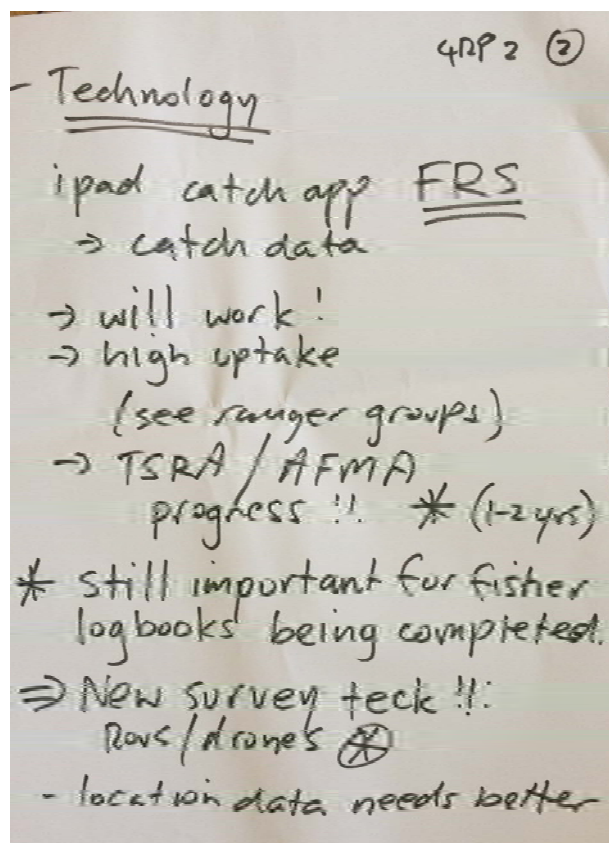 GRP 2 ②
- Technology
ipad catch app FRS
→ catch data
→ will work!
→ high uptake
(see ranger groups)
→ TSRA / AFMA
progress !! * (1-2 yrs)
* still important for fisher
logbooks being completed.
⇒ New survey teck !!
ROVs/drones ⊛
- location data needs better